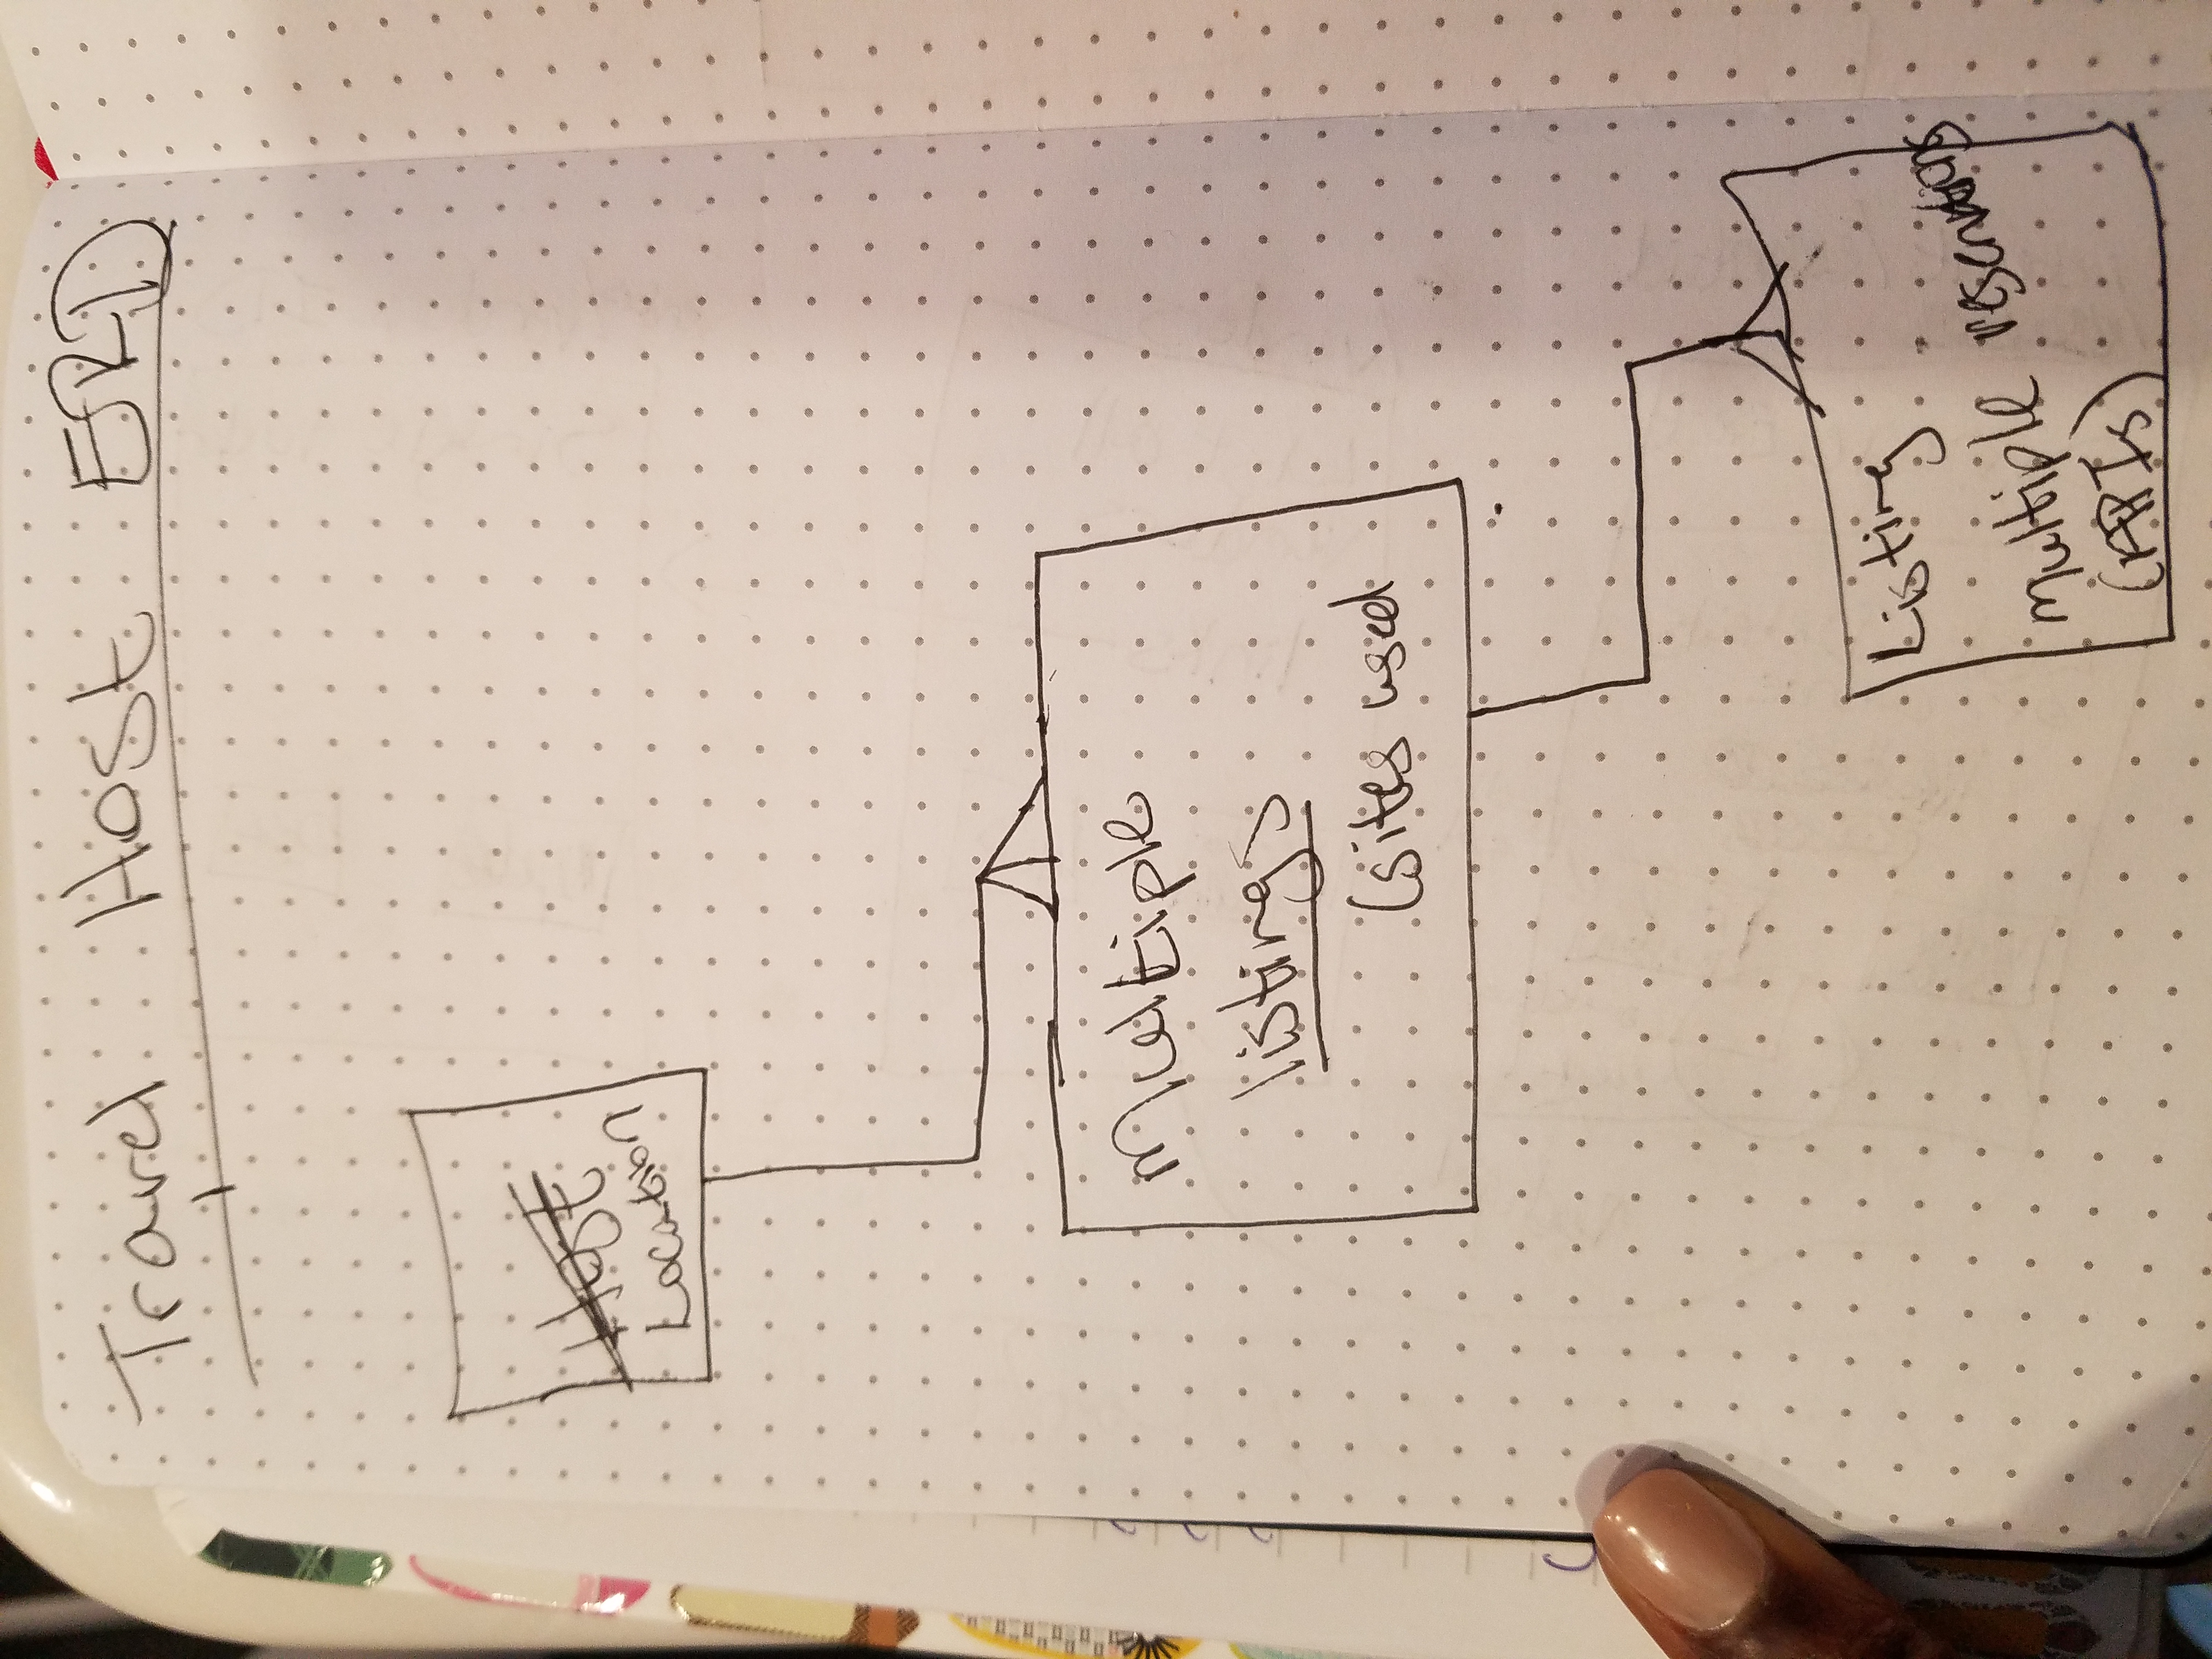 Travel Host ERD
Host
Location
Multiple
listings
(sites used
Listing
Multiple reservations
(APIs)